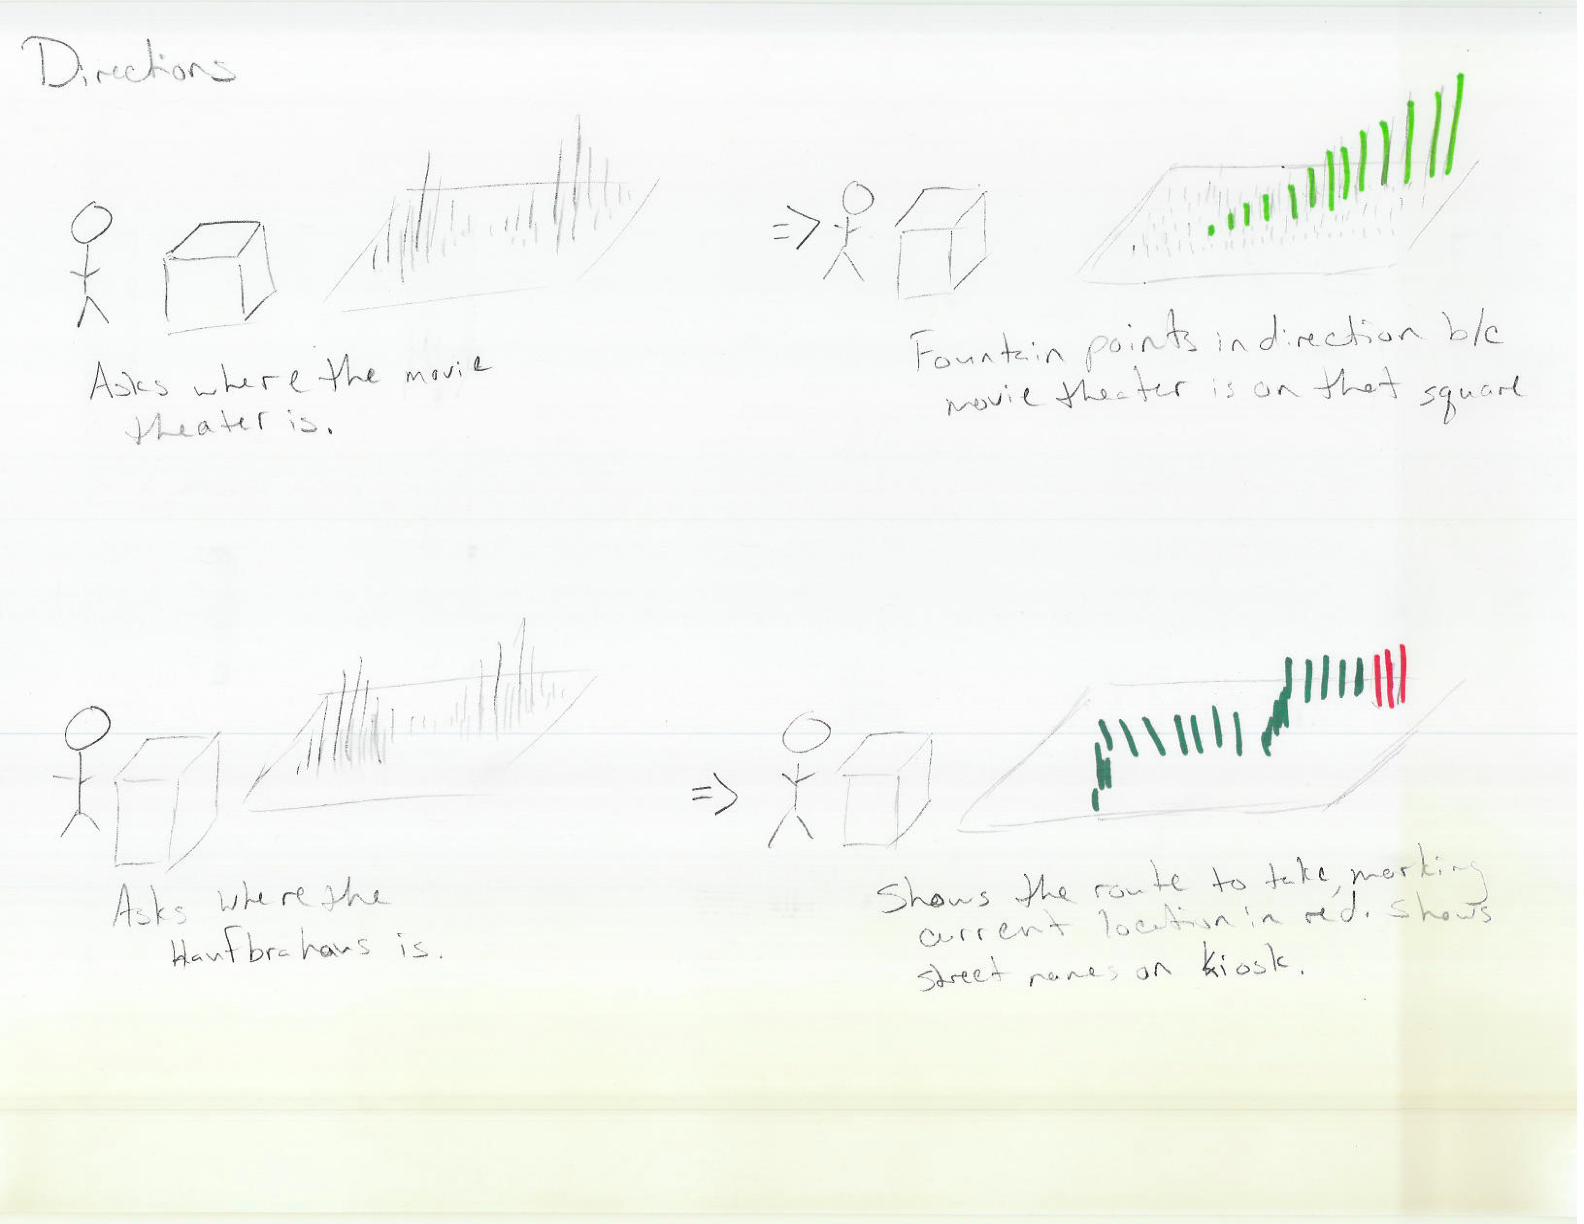 Directions
Asks where the movie
theater is.
=> 
Fountain points in direction b/c
movie theater is on that square
Asks where the
Haufbrahaus is.
=>
Shows the route to take, marking
current location in red. Shows
street names on kiosk.